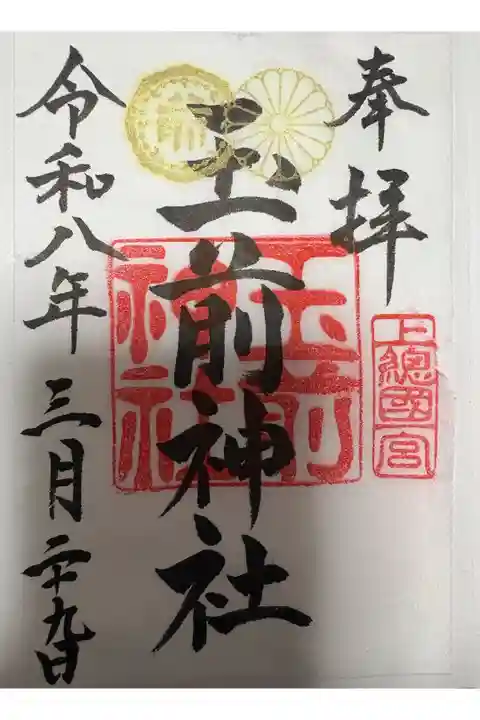 奉拝
上總國一宮
玉前神社
玉前
神社
令和八年三月二十九日